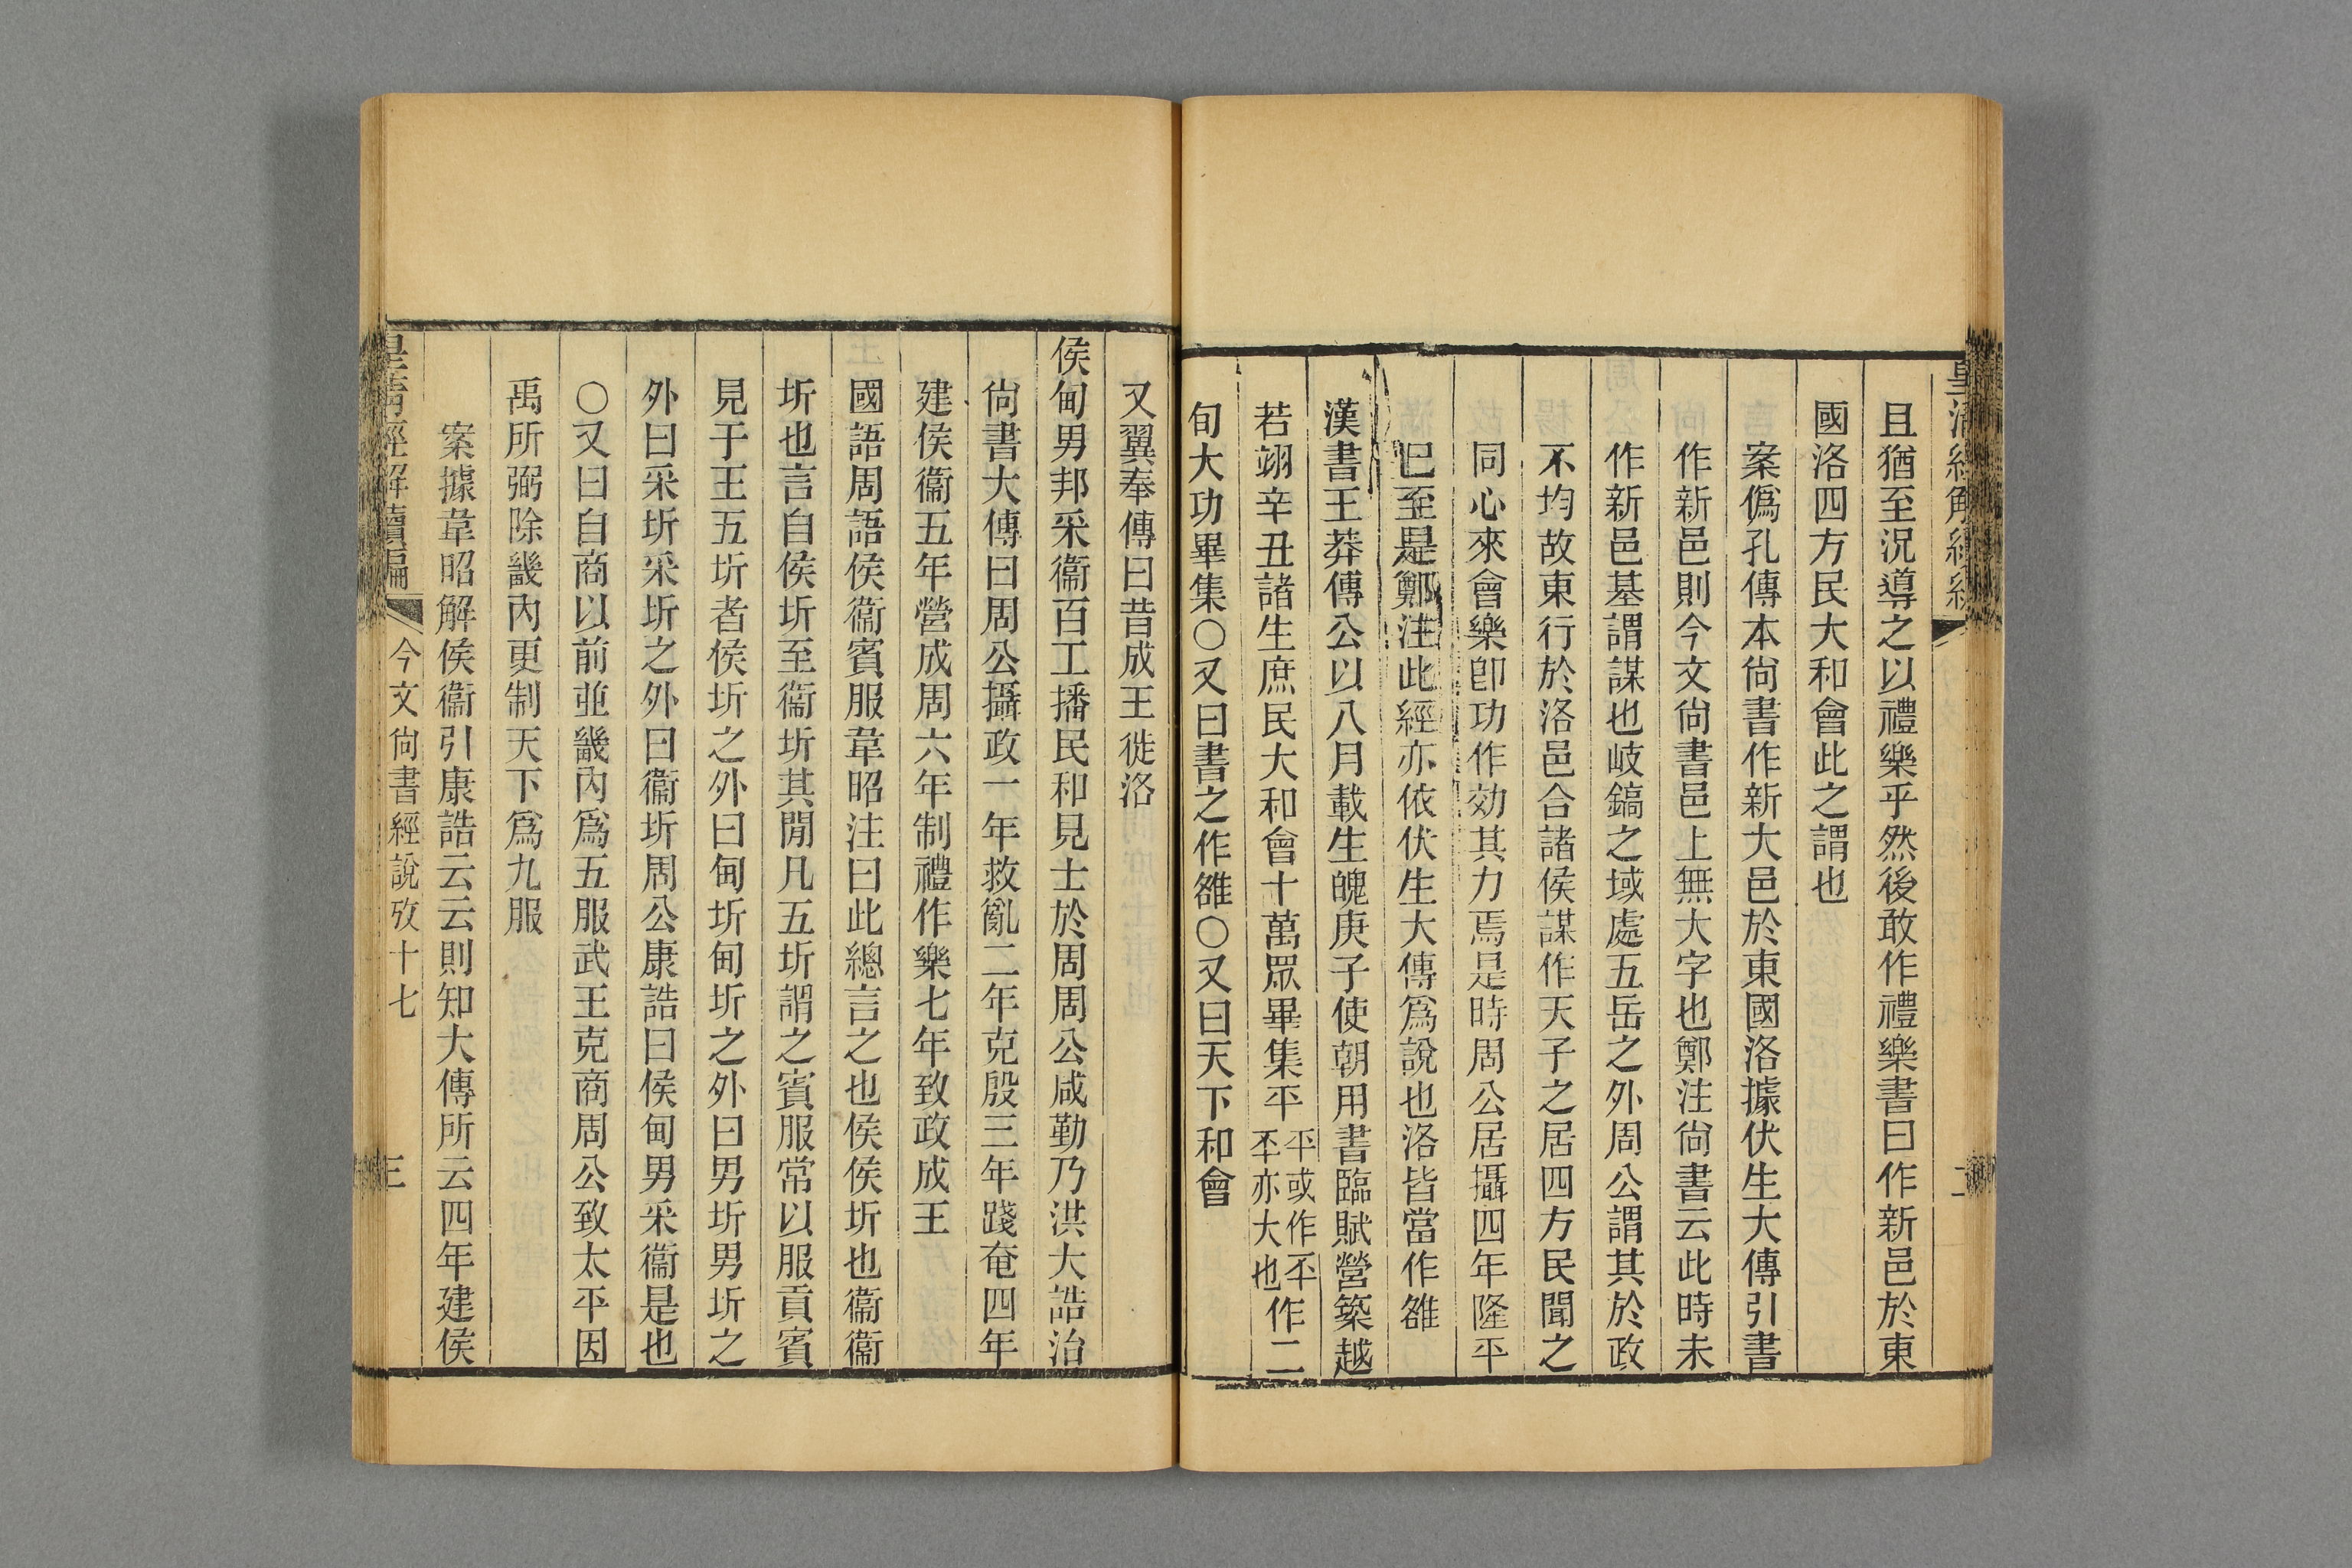 皇清經解續
二
且猶至況導之以禮樂乎然後敢作禮樂書曰作新邑於東
國洛四方民大和會此之謂也
案僞孔傳本尙書作新大邑於東國洛據伏生大傳引書
作新邑則今文尙書邑上無大字也鄭注尙書云此時未
作新邑基謂謀也岐鎬之域處五岳之外周公謂其於政
不均故東行於洛邑合諸侯謀作天子之居四方民聞之
同心來會樂卽功作効其力焉是時周公居攝四年隆平
巳至是鄭注此經亦依伏生大傳爲說也洛皆當作雒
漢書王莽傳公以八月載生魄庚子使朝用書臨賦營築越
若翊辛丑諸生庶民大和會十萬眾畢集平平或作丕丕亦大也作二
旬大功畢集○又曰書之作雒○又曰天下和會
又翼奉傳曰昔成王徙洛
侯甸男邦采衞百工播民和見士於周周公咸勤乃洪大誥治
尙書大傳曰周公攝政一年救亂二年克殷三年踐奄四年
建侯衞五年營成周六年制禮作樂七年致政成王
國語周語侯衞賓服韋昭注曰此總言之也侯侯圻也衞衞
圻也言自侯圻至衞圻其閒凡五圻謂之賓服常以服貢賓
見于王五圻者侯圻之外曰甸圻甸圻之外曰男圻男圻之
外曰采圻采圻之外曰衞圻周公康誥曰侯甸男采衞是也
○又曰自商以前並畿內爲五服武王克商周公致太平因
禹所弼除畿內更制天下爲九服
案據韋昭解侯衞引康誥云云則知大傳所云四年建侯
皇清經解續編
今文尙書經說攷十七
三